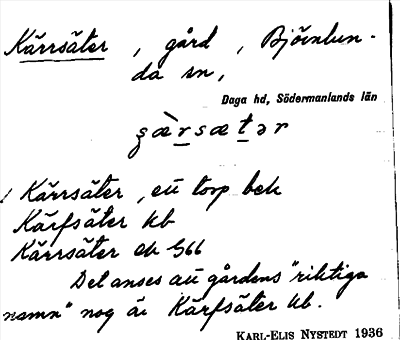 Kärrsäter, gård, Björnlun-
da sn,
Daga hd, Södermanlands län
Kärrsäter, ett torp bek
Kärfsäter kb
Kärrsäter ek 566
Det anses att gårdens "riktiga
namn" nog är Kärfsäter kb.
KARL-ELIS NYSTEDT 1936